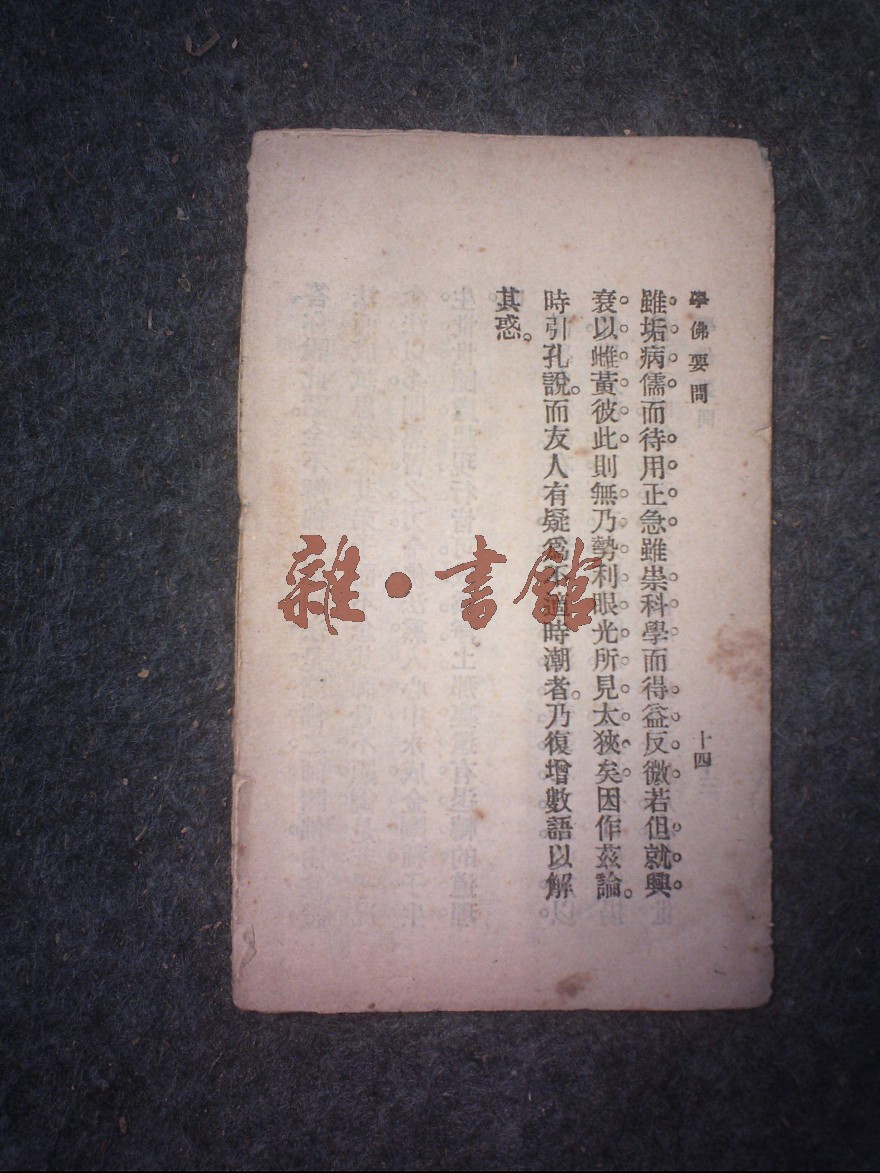 學佛要問
十四
雖垢病儒而待用正急雖祟科學而得益反微若但就興
衰以雌黃彼此則無乃勢利眼光所見太狹矣因作茲論。
時引孔說。而友人有疑爲不適時潮者。乃復增數語以解
其惑。
雜·書館